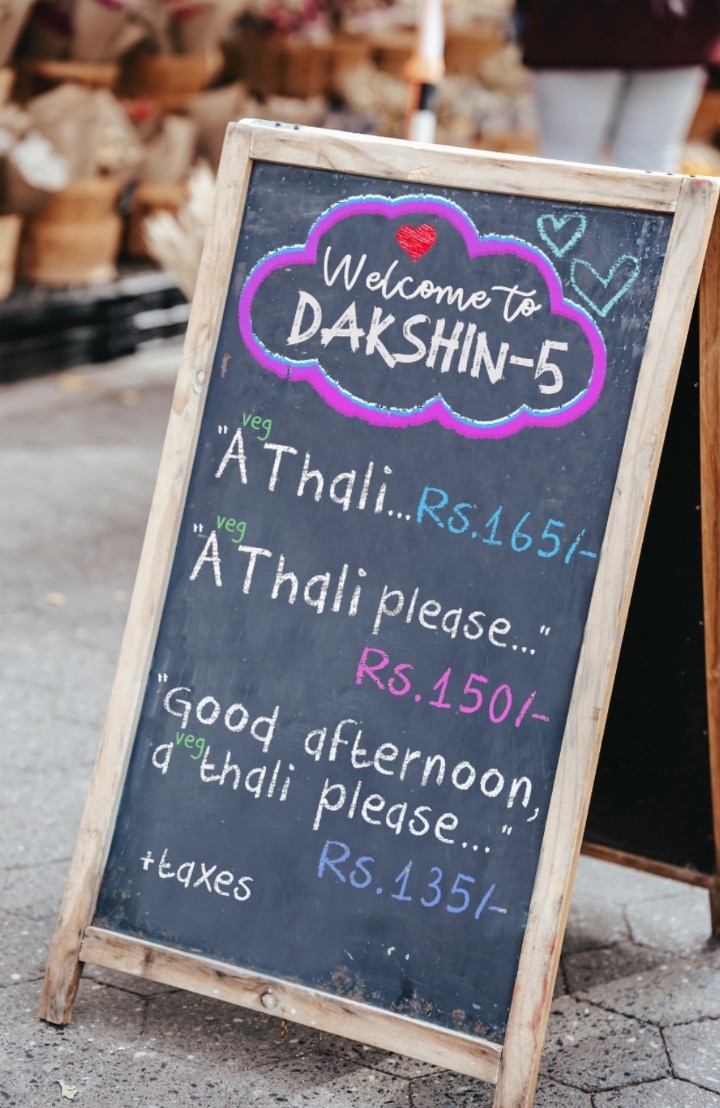 Welcome to
DAKSHIN-5
"A veg Thali... Rs.165/-
"A veg Thali please..."
Rs.150/-
"Good afternoon,
a veg thali please..."
Rs.135/-
+taxes